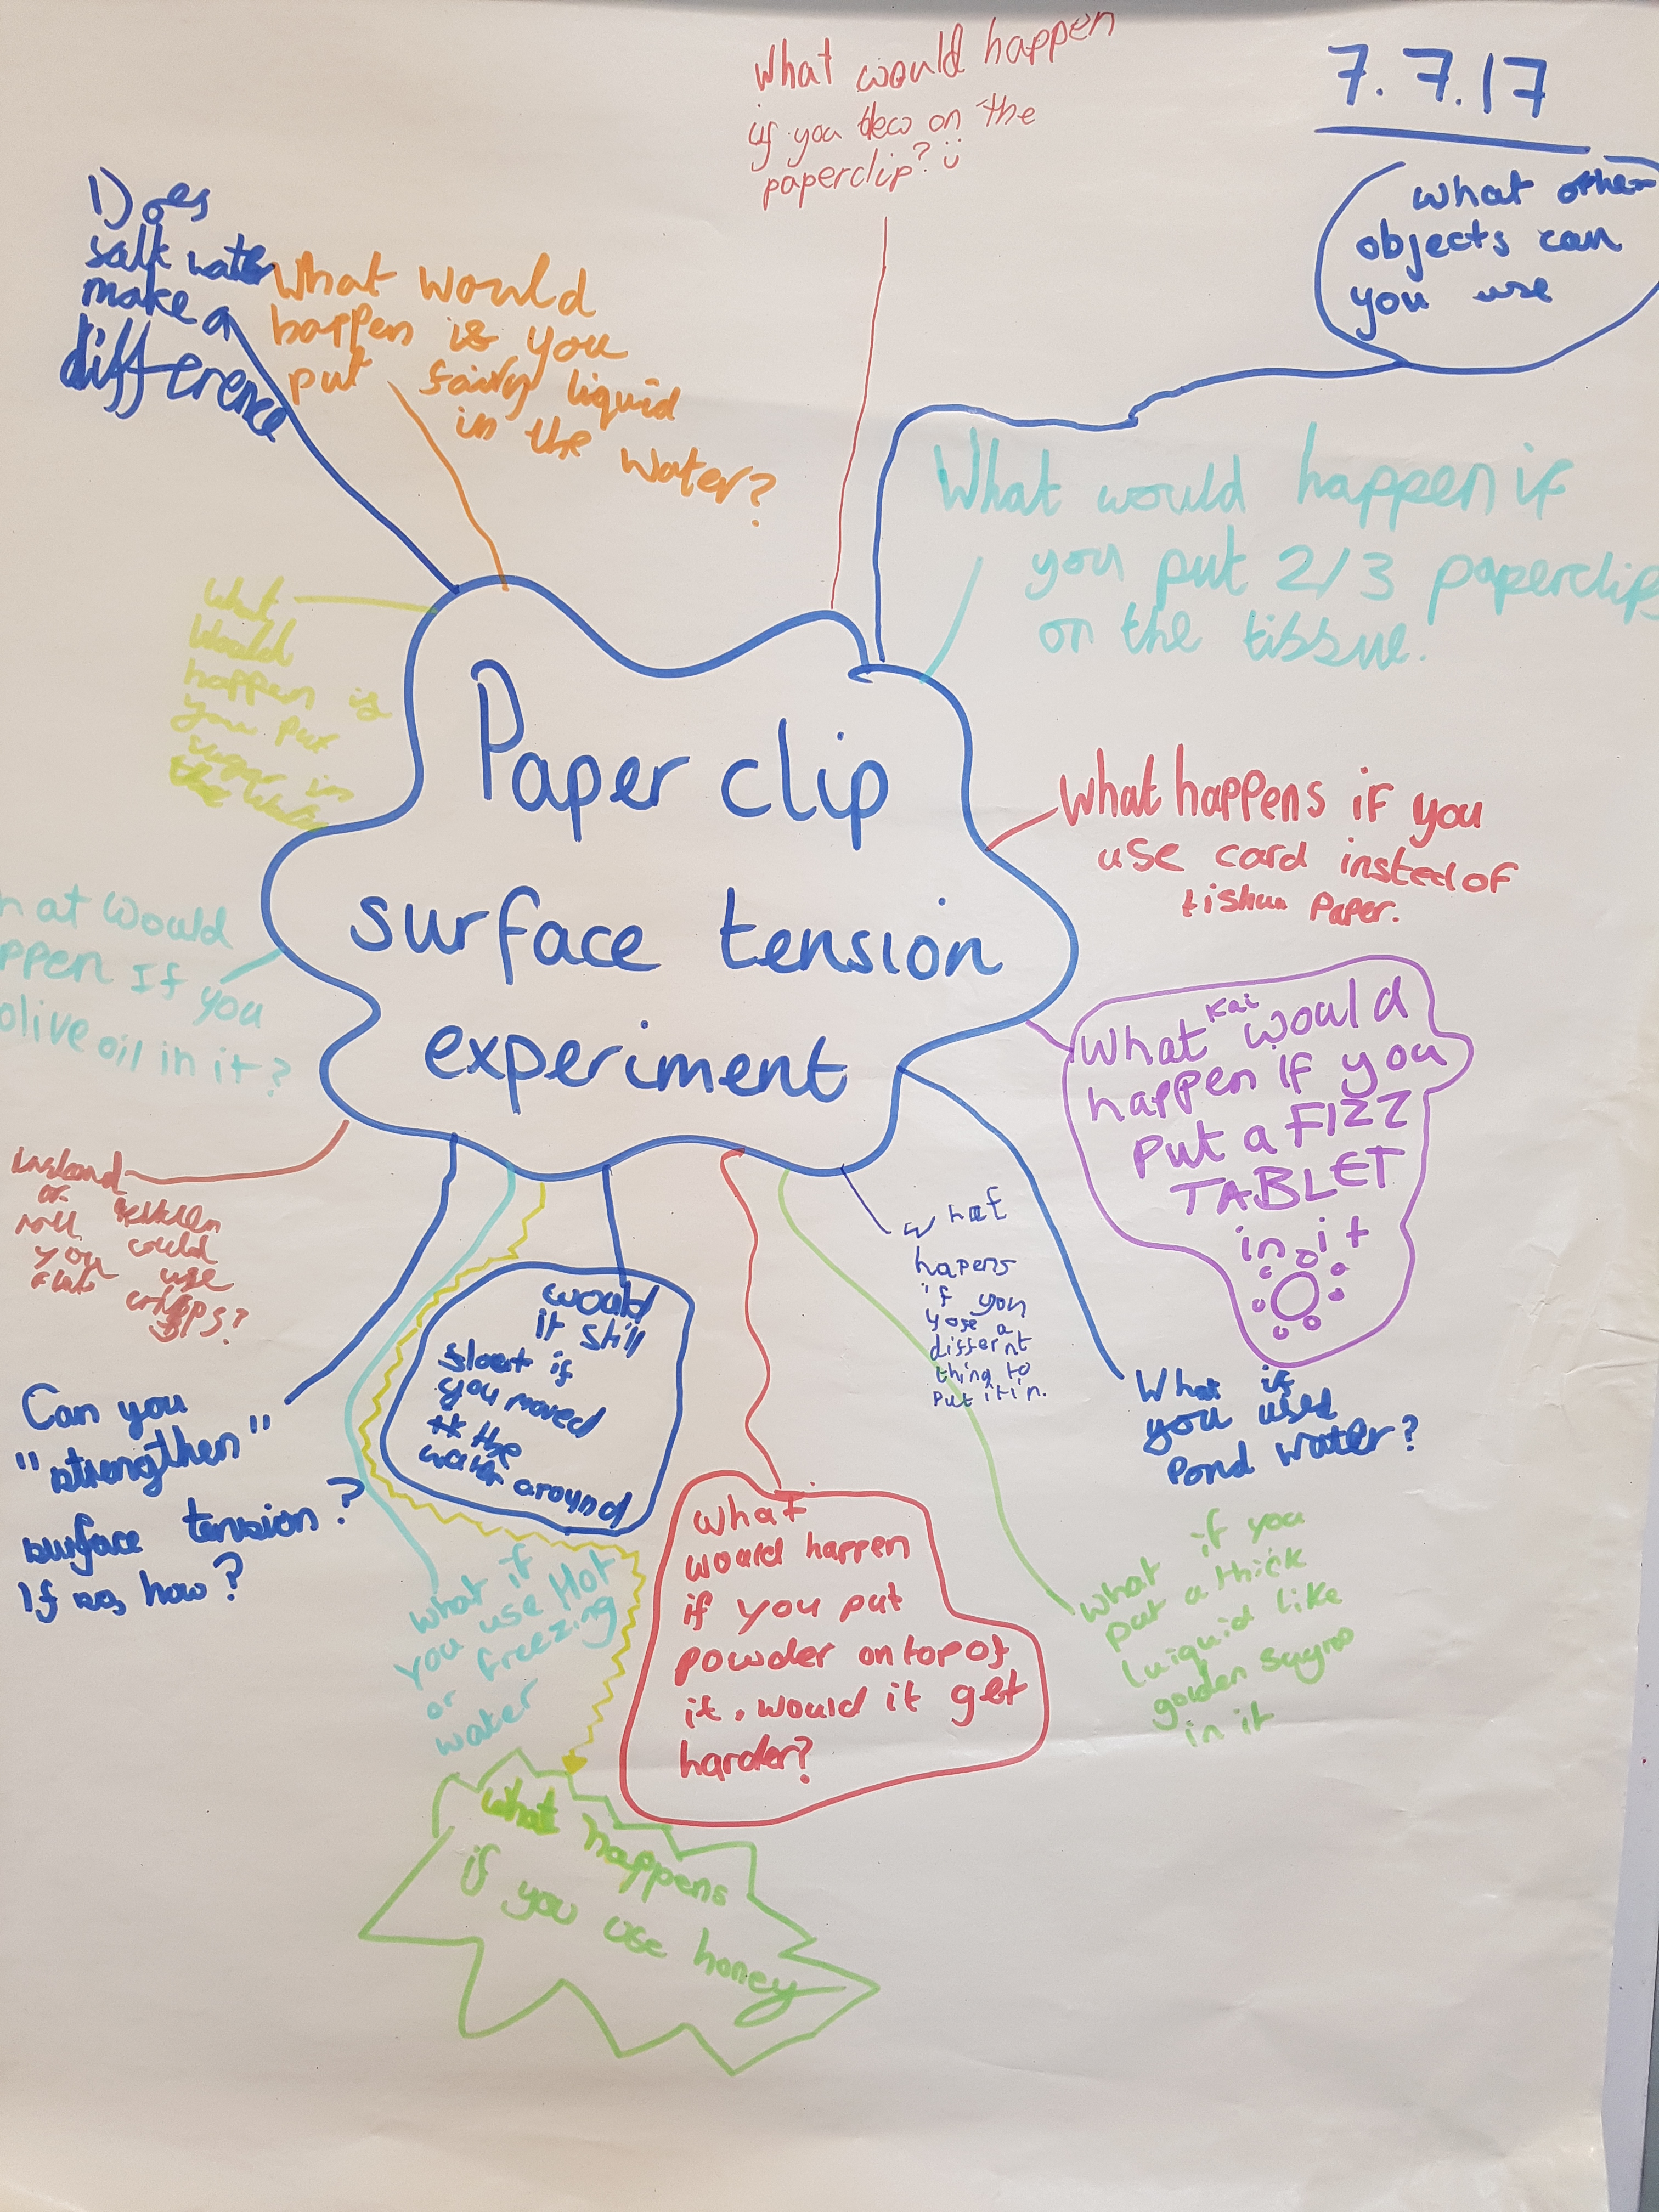 7.7.17
What would happen
if you blew on the
paperclip?
what other
objects can
you use
1) Does
salt water
make a
difference
What would
happen is you
put fairy liquid
in the water?
What would happen if
you put 2/3 paperclips
on the tissue.
What
Would
happen is
you put
sugar in
the water
Paper clip
surface tension
experiment
What happens if you
use card insted of
tishuu Paper.
hat Would
ppen If you
olive oil in it?
Kai
What would
happen if you
Put a FIZZ
TABLET
in it
instead
of
you could
use
What
hapens
if you
yose a
differnt
thing to
put it in.
would
it still
float if
you moved
the
water around
Can you
"strengthen"
surface tension?
If so, how?
What if
you used
Pond water?
what if
you use Hot
or freezing
water
What
would happen
if you put
powder on top of
it. would it get
harder?
what if you
put a thick
luiquid like
golden sayrup
in it
what happens
if you use honey